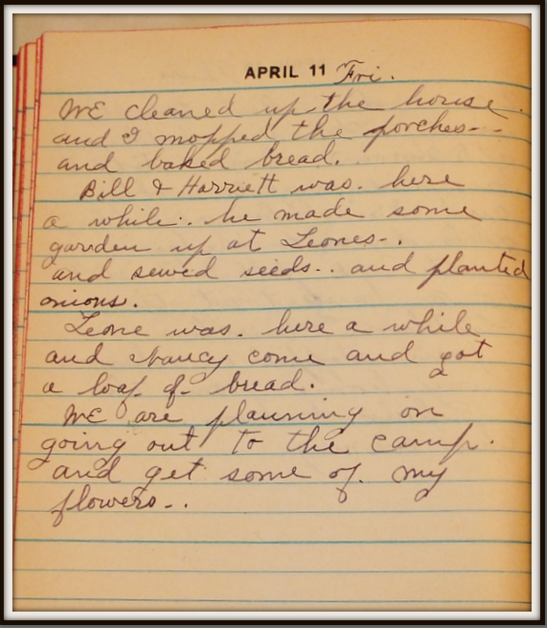 APRIL 11 Fri.
WE cleaned up the house.
and I mopped the porches--
and baked bread.
Bill & Harriett was. here
a while.. he made some
garden up at Leones-.
and sewed seeds.. and planted
onions.
Leone was. here a while
and Nancy come and got
a loaf of- bread.
WE are planning on
going out to the camp.
and get some of my
flowers-.